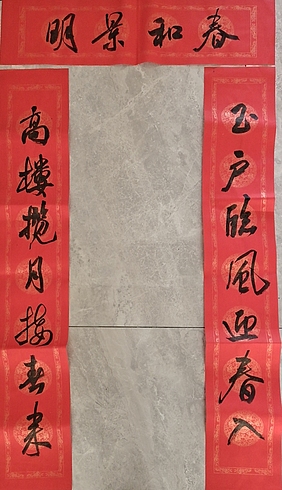 春和景明
玉户临风迎春入
高楼揽月接春来